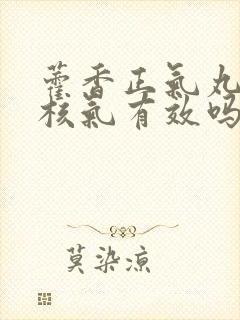 藿香正氣丸
核氣有效吗
莫染凉